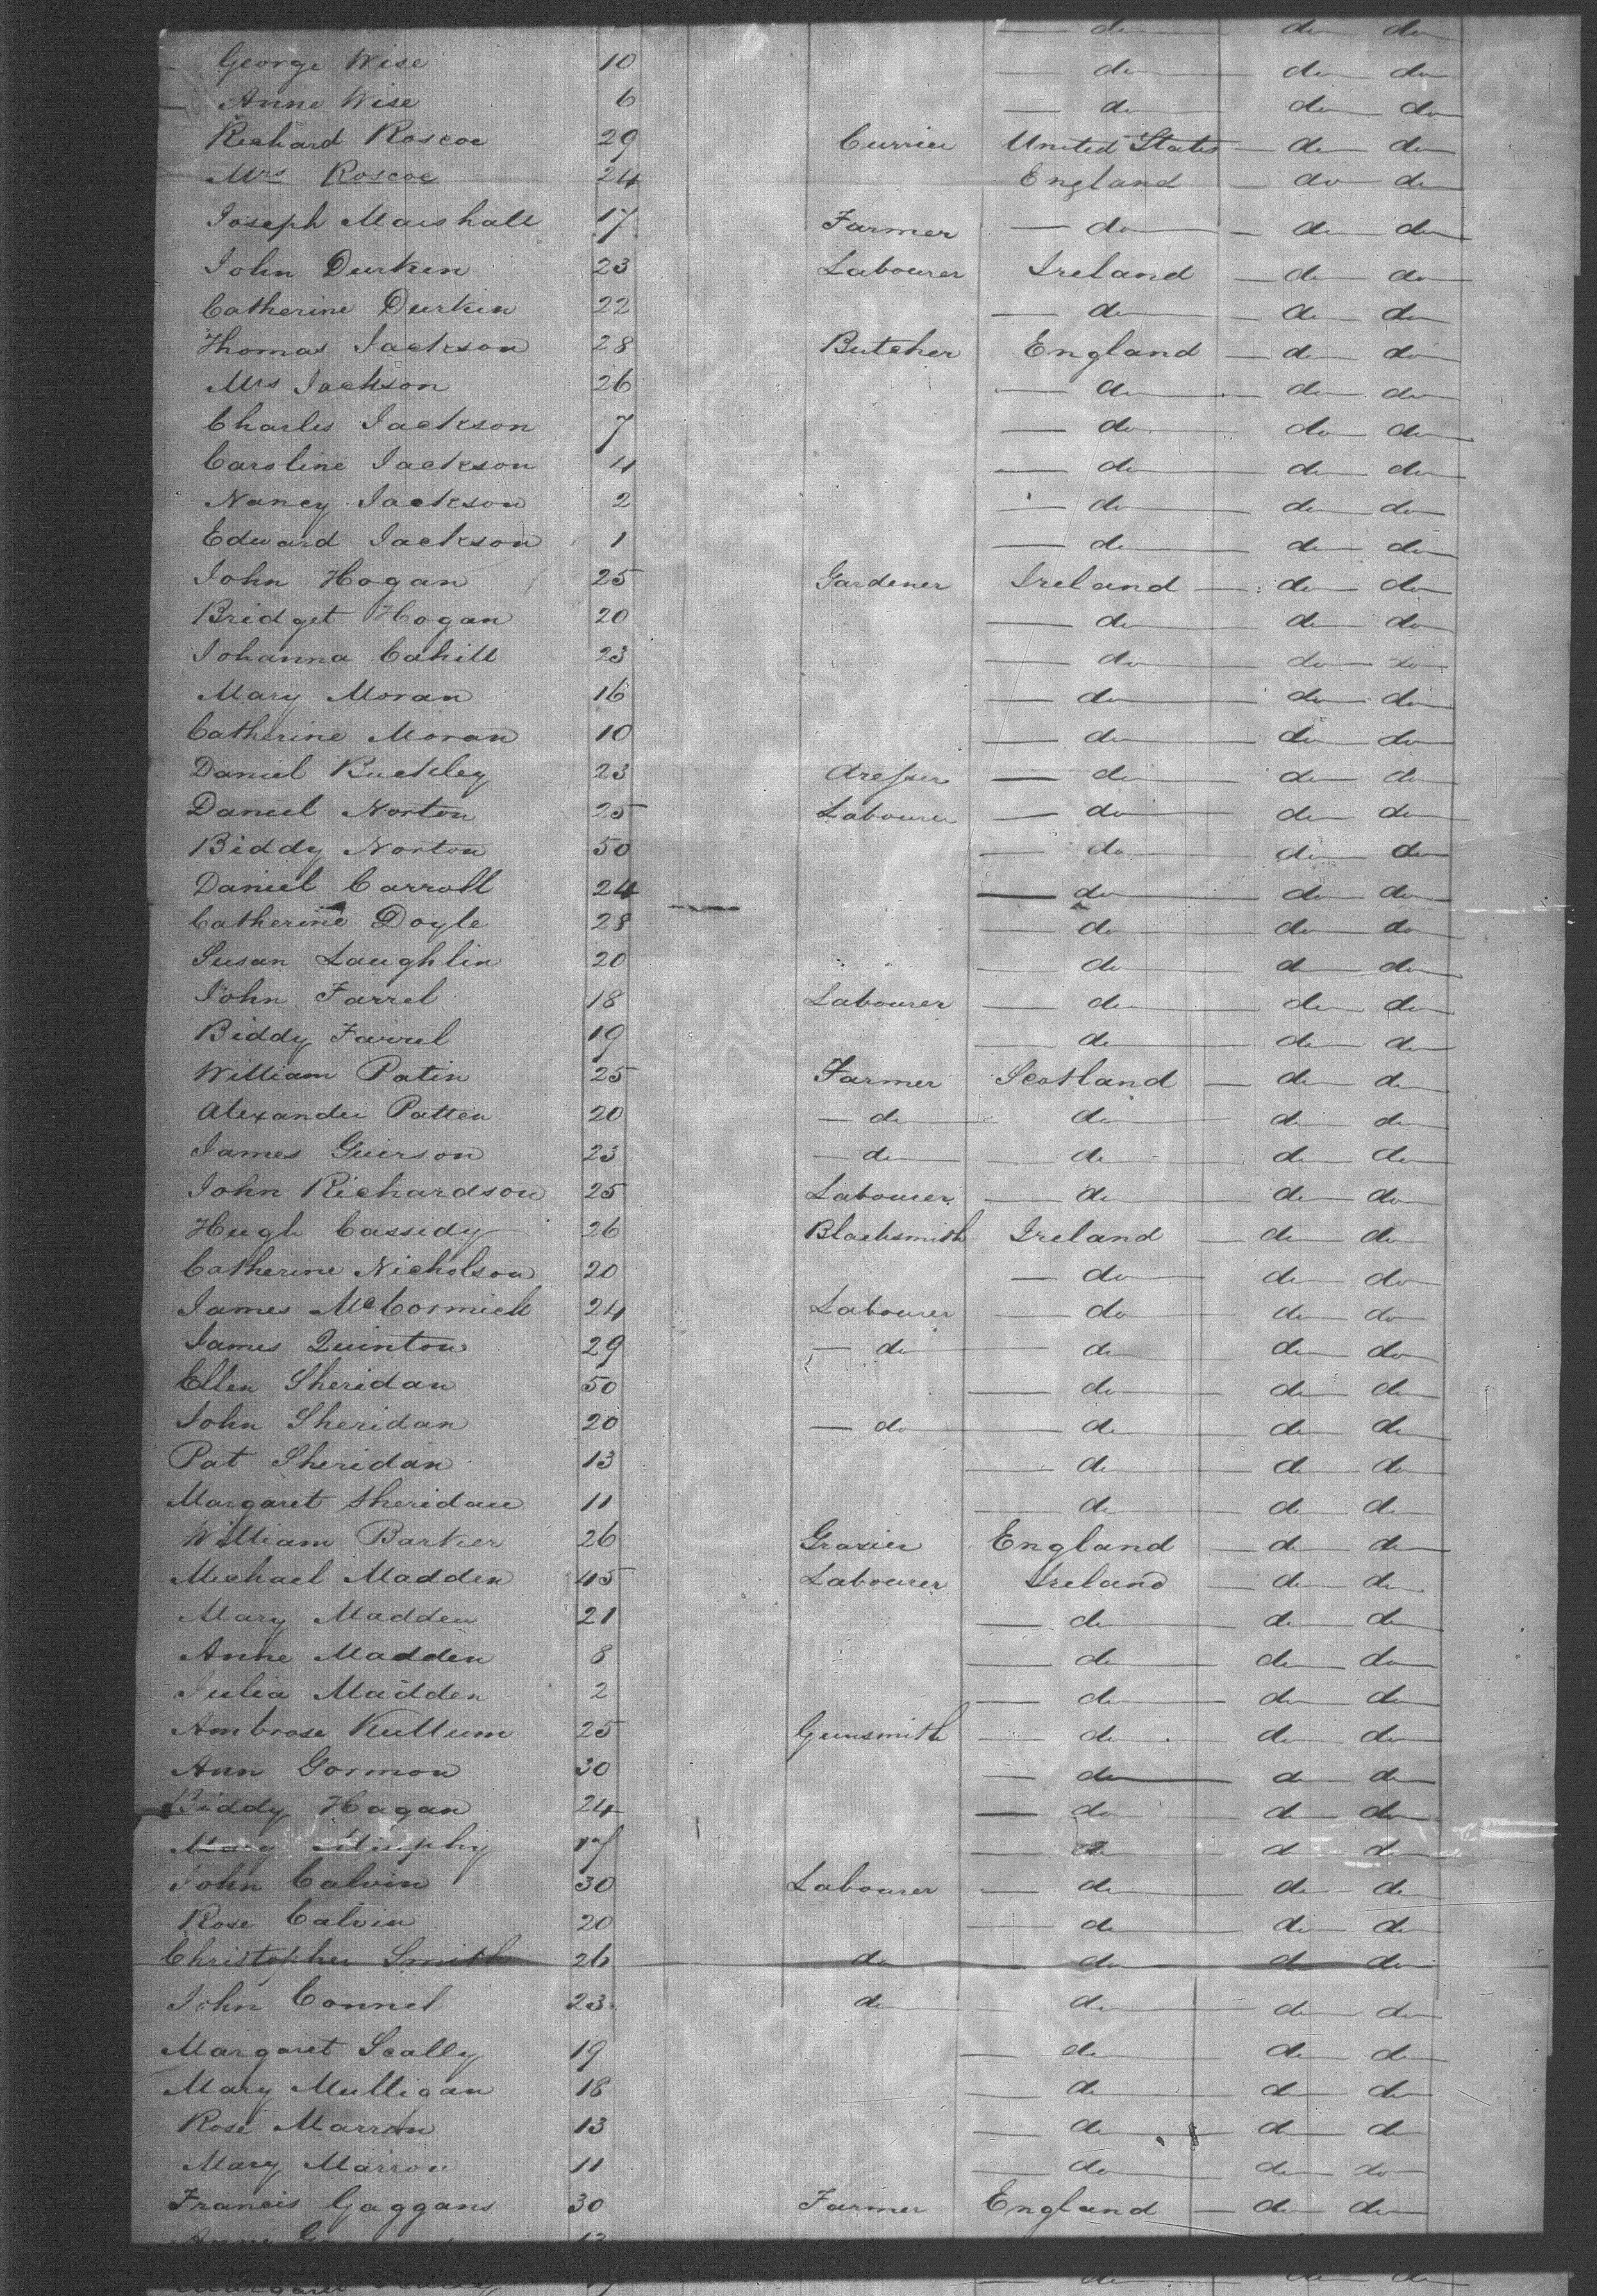 do do do
George Wise 10 do do do
Anne Wise 6 do do do
Richard Roscoe 29 Currier United States do do
Mrs Roscoe 24 England do do
Joseph Marshall 17 Farmer do do do
John Durkin 23 Labourer Ireland do do
Catherine Durkin 22 do do do
Thomas Jackson 28 Butcher England do do
Mrs Jackson 26 do do do
Charles Jackson 7 do do do
Caroline Jackson 4 do do do
Nancy Jackson 2 do do do
Edward Jackson 1 do do do
John Hogan 25 Gardener Ireland do do
Bridget Hogan 20 do do do
Johanna Cahill 23 do do do
Mary Moran 16 do do do
Catherine Moran 10 do do do
Daniel Buckley 23 dresser do do do
Daniel Norton 25 Labourer do do do
Biddy Norton 50 do do do
Daniel Carroll 24 do do do
Catherine Doyle 28 do do do
Susan Laughlin 20 do do do
John Farrel 18 Labourer do do do
Biddy Farrel 19 do do do
William Patin 25 Farmer Scotland do do
Alexander Patten 20 do do do do
James Guirson 23 do do do do
John Richardson 25 Labourer do do do
Hugh Cassidy 26 Blacksmith Ireland do do
Catherine Nicholson 20 do do do
James McCormick 24 Labourer do do do
James Quinton 29 do do do do
Ellen Sheridan 50 do do do
John Sheridan 20 do do do do
Pat Sheridan 13 do do do
Margaret Sheridan 11 do do do
William Barker 26 Grazier England do do
Michael Madden 45 Labourer Ireland do do
Mary Madden 21 do do do
Anne Madden 8 do do do
Julia Madden 2 do do do
Ambrose Kullum 25 Gunsmith do do do
Ann Gormon 30 do do do
Biddy Hagan 24 do do do
Mary Murphy 17 do do do
John Calvin 30 Labourer do do do
Rose Calvin 20 do do do
Christopher Smith 26 do do do do
John Connel 23 do do do do
Margaret Scally 19 do do do
Mary Mulligan 18 do do do
Rose Marron 13 do do do
Mary Marron 11 do do do
Francis Gaggans 30 Farmer England do do